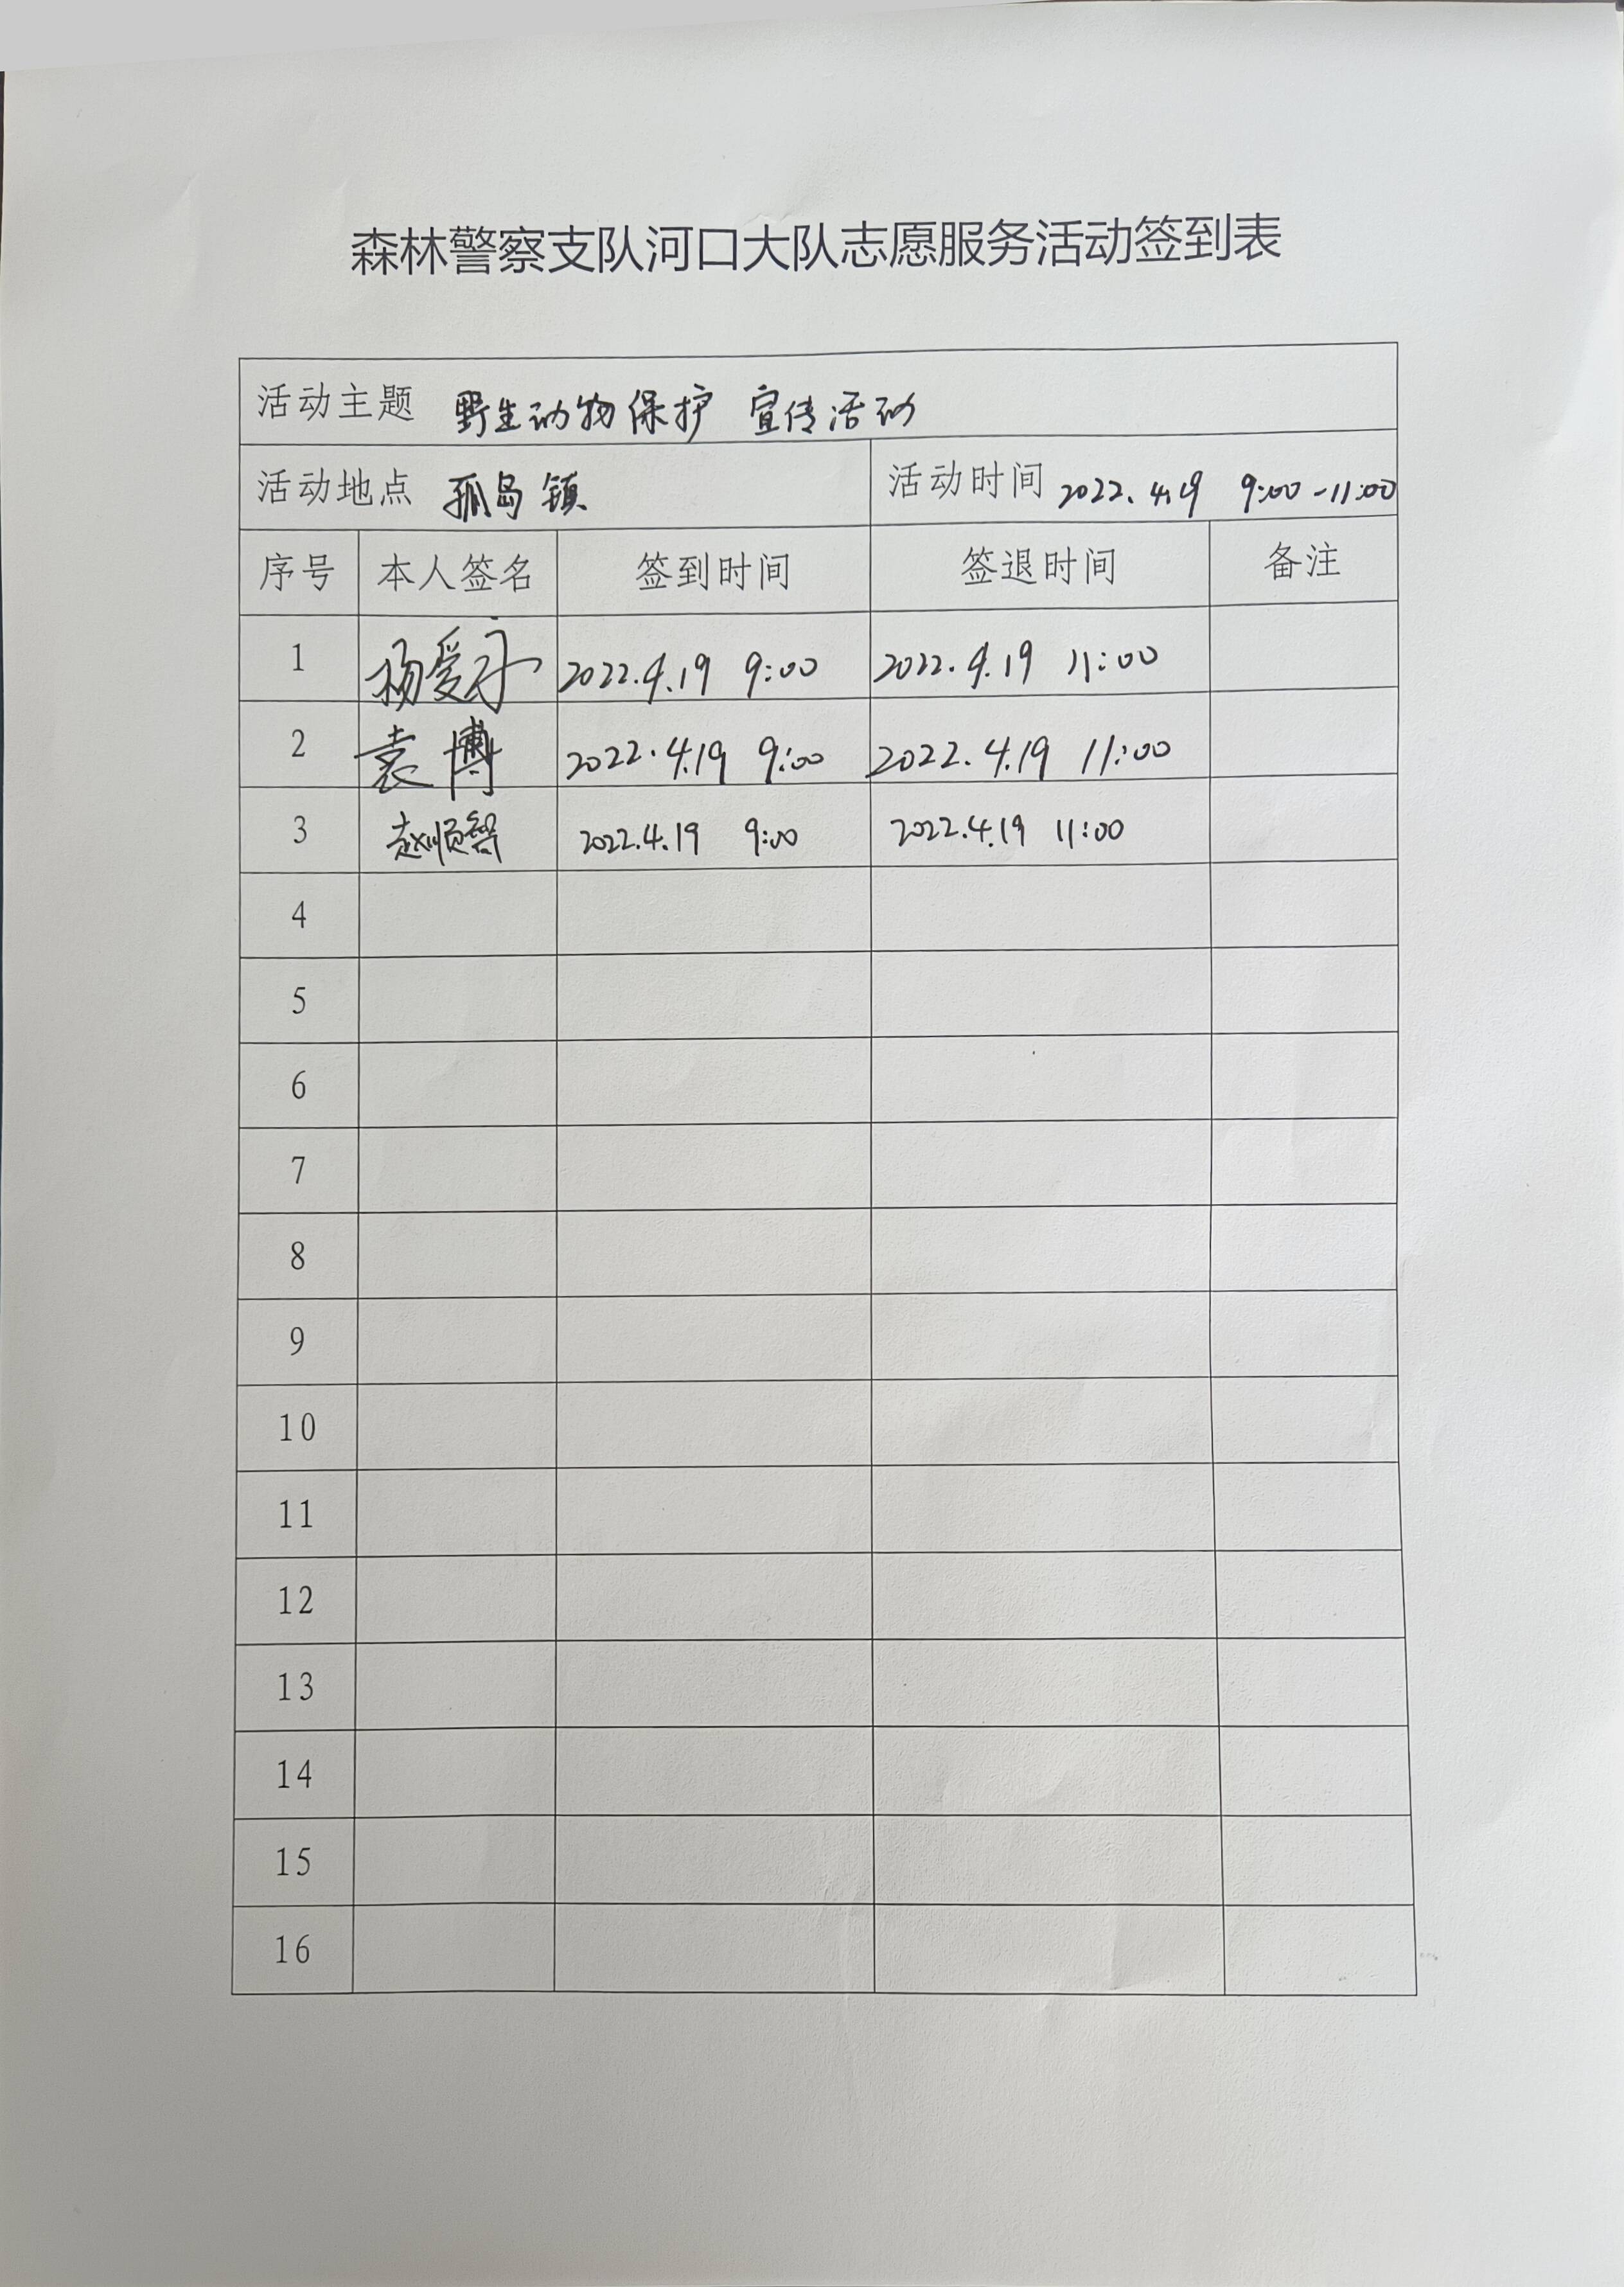 森林警察支队河口大队志愿服务活动签到表
活动主题 野生动物保护 宣传活动
活动地点 孤岛镇 活动时间 2022.4.19 9:00-11:00
序号 本人签名 签到时间 签退时间 备注
1 杨爱 2022.4.19 9:00 2022.4.19 11:00
2 袁博 2022.4.19 9:00 2022.4.19 11:00
3 赵顺智 2022.4.19 9:00 2022.4.19 11:00
4
5
6
7
8
9
10
11
12
13
14
15
16